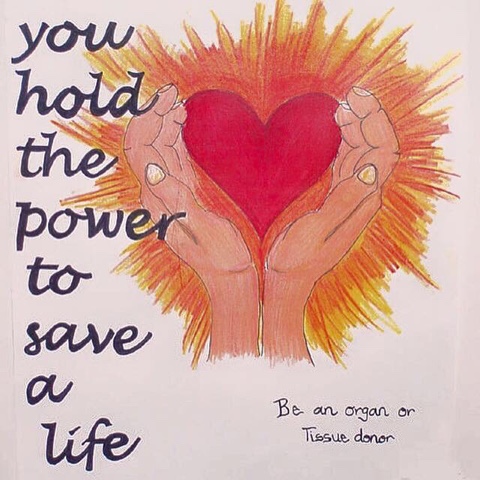 you
hold
the
power
to
save
a
life
Be an organ or
Tissue donor